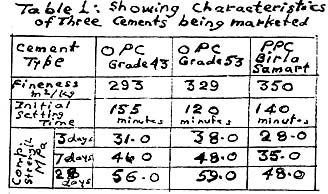 Table 1: Showing Characteristics
of Three Cements being marketed
Cement Type | OPC Grade 43 | OPC Grade 53 | PPC Birla Samart
Fineness m²/kg | 293 | 329 | 350
Initial Setting Time | 155 minutes | 120 minutes | 140 minutes
3 days | 31.0 | 38.0 | 28.0
7 days | 46.0 | 48.0 | 35.0
28 days | 56.0 | 59.0 | 48.0